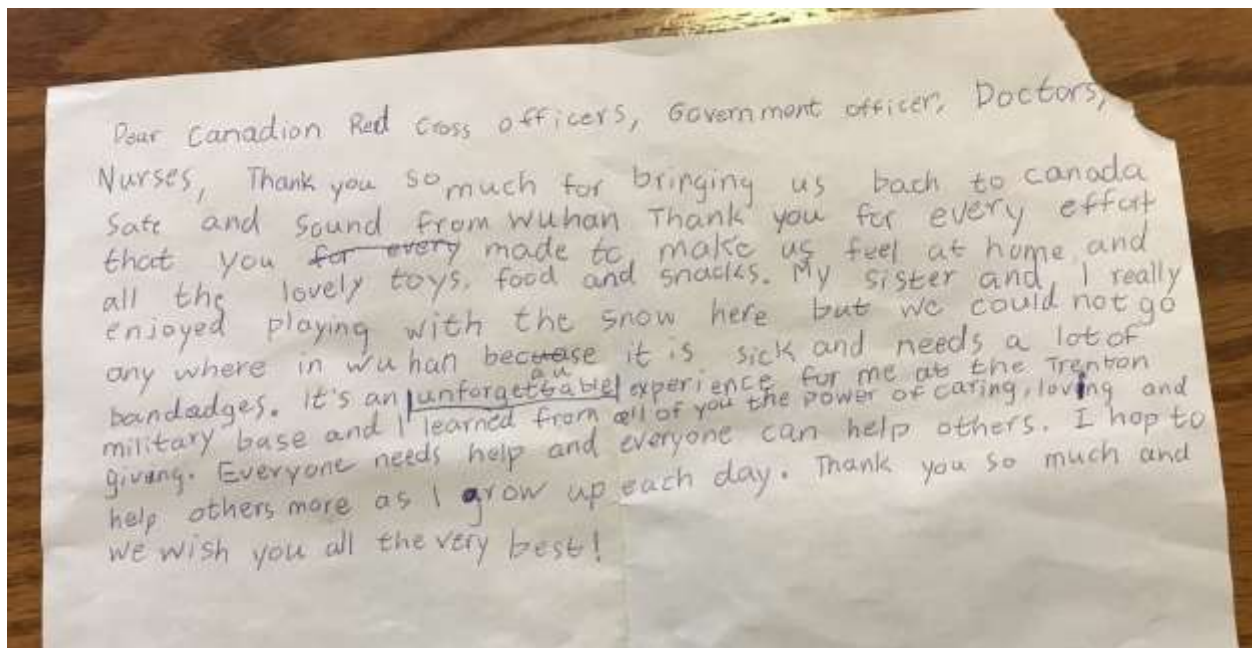 Dear Canadion Red Cross officers, Government officer, Doctors,
Nurses, Thank you so much for bringing us bach to canada
Safe and Sound from Wuhan Thank you for every effort
that you for every made to make us feel at home and
all the lovely toys, food and snacks. My sister and I really
enjoyed playing with the snow here but we could not go
any where in Wuhan because it is sick and needs a lot of
bandadges. It's an unforgettable experience for me at the Trenton
military base and I learned from all of you the power of caring, loving and
giving. Everyone needs help and everyone can help others. I hop to
help others more as I grow up each day. Thank you so much and
we wish you all the very best!